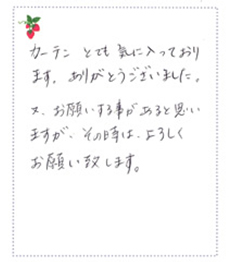 カーテン とても 気に入っており
ます。ありがとうございました。
又、お願いする事があると思い
ますが、その時は、よろしく
お願い致します。